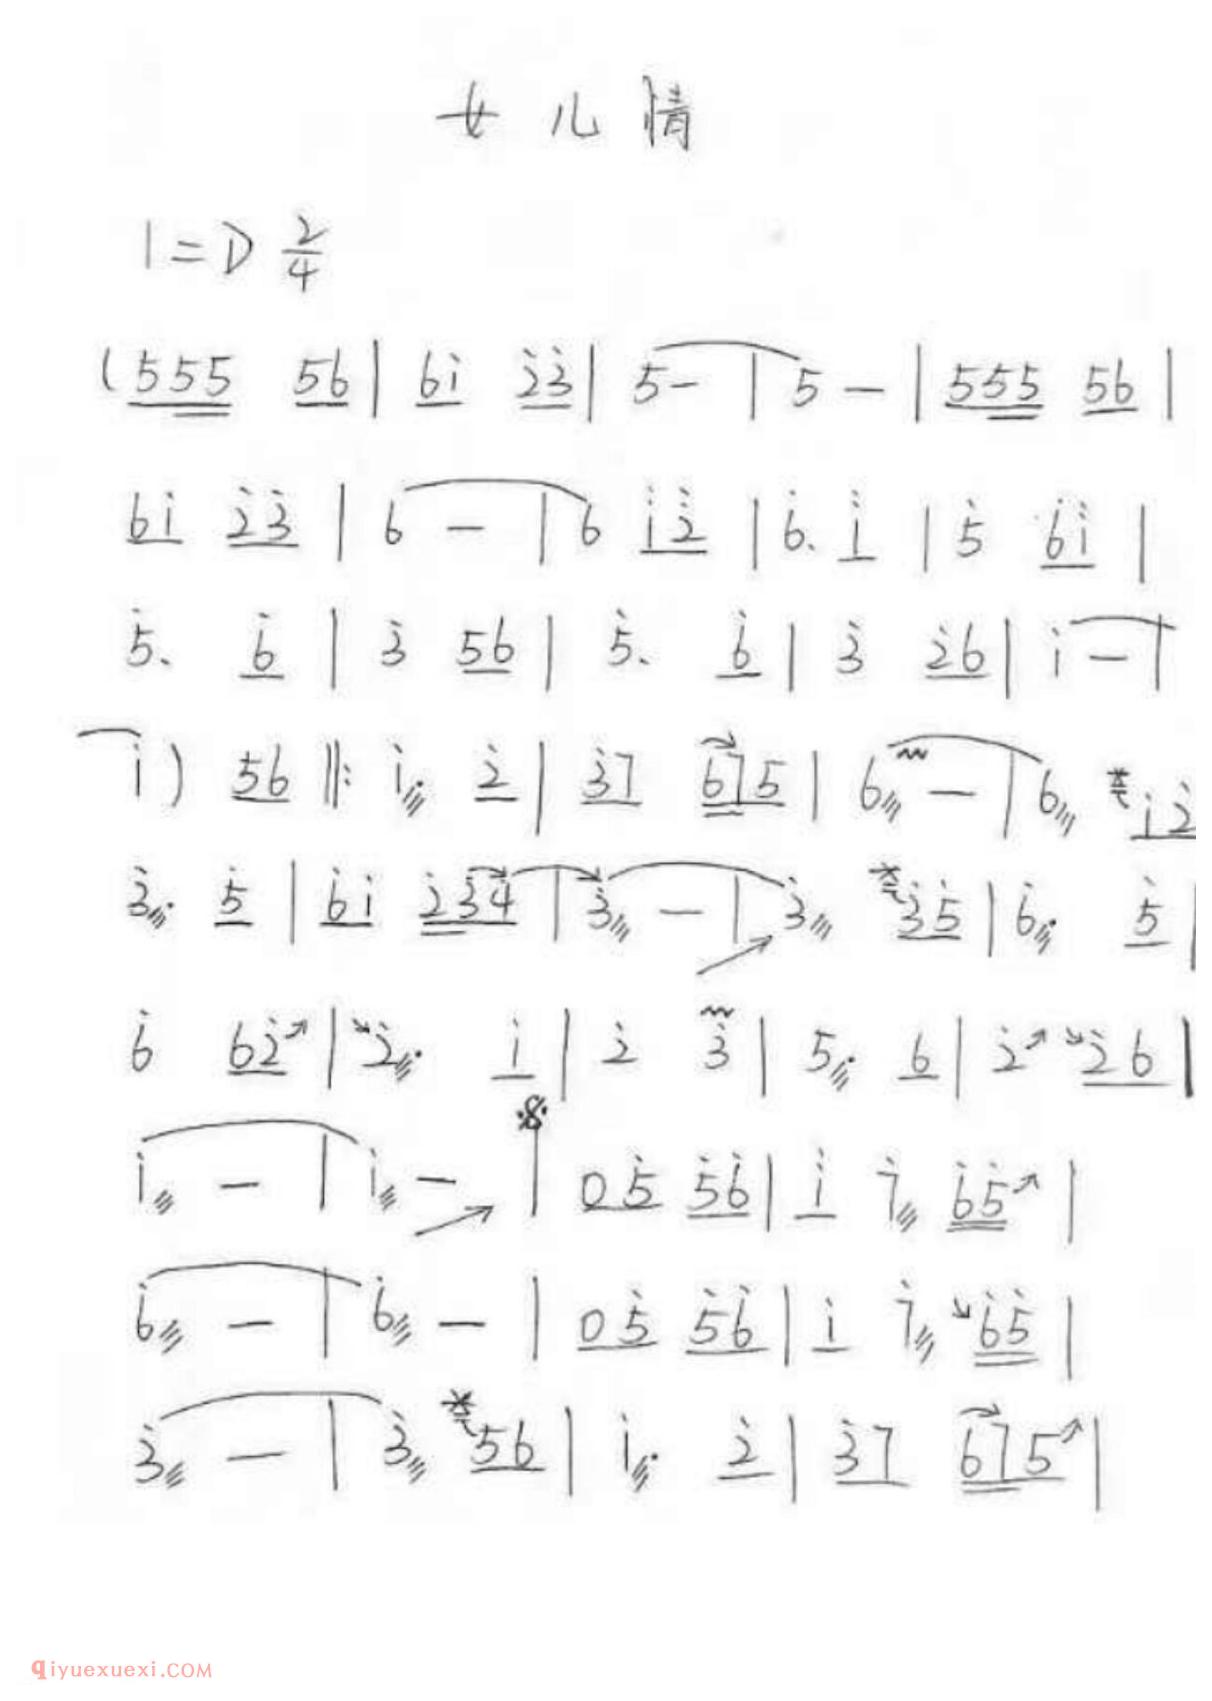 女儿情
1=D 2/4
(555 56 | 6i 2̇3̇ | 5 - | 5 - | 555 56 |
6i 2̇3̇ | 6 - | 6 i2̇ | 6̇. i | 5̇ 6̇i |
5̇. 6̇ | 3̇ 56 | 5̇. 6̇ | 3̇ 2̇6 | i - |
i) 56 ‖: i. 2̇ | 3̇7 675 | 6 - | 6 i2̇
3̇. 5̇ | 6̇i 2̇3̇4̇ | 3̇ - | 3̇ 3̇5̇ | 6̇. 5̇ |
6̇ 62̇ | 2̇. i | 2̇ 3̇ | 5. 6 | 2̇ 2̇6 |
i - | i - | 05̇ 5̇6̇ | i 7̇ 6̇5̇ |
6̇ - | 6̇ - | 05̇ 5̇6̇ | i 7̇ 6̇5̇ |
3̇ - | 3̇ 56 | i. 2̇ | 3̇7 675 |
qiyuexuexi.COM